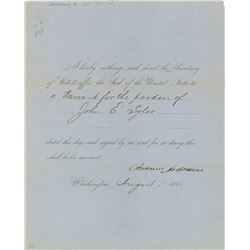 I hereby authorize and direct the Secretary
of State to affix the Seal of the United States to
a Warrant for the pardon of
John E. Tyler
dated this day and signed by me and for so doing this
shall be his warrant.
Andrew Johnson
Washington, August